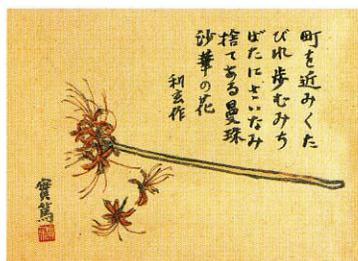 町を近みくた
びれ歩むみち
ばたにさいなみ
捨てある曼珠
沙華の花
利玄作
實篤